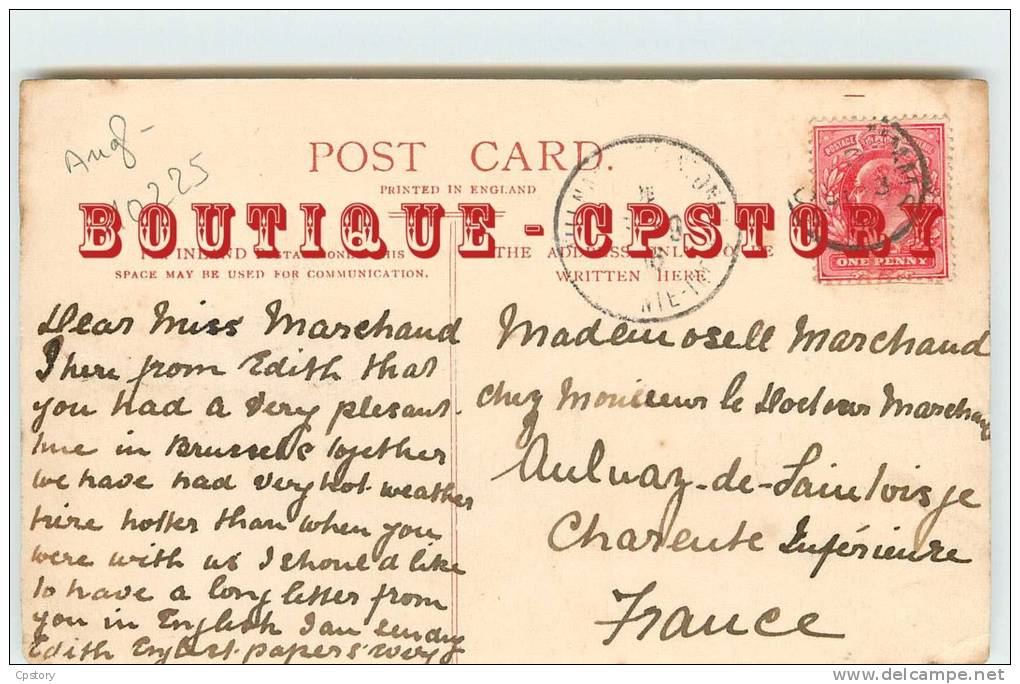 Ang
10225
POST CARD.
PRINTED IN ENGLAND
BOUTIQUE - CPSTORY
INLAND THIS
SPACE MAY BE USED FOR COMMUNICATION.
THE ADDRESS ONLY TO BE
WRITTEN HERE
POSTAGE
ONE PENNY
Dear Miss Marchaud
I here from Edith that
you had a very plesant
time in Brussels together
we have had very hot weather
here hotter than when you
were with us I should like
to have a long letter from
you in English I am sending
Edith English papers
Mademosell Marchaud
chez le Docteur Marchaud
Aulnay-de-Saintoisge
Charente Inférieure
France
Cpstory
delcampe.net